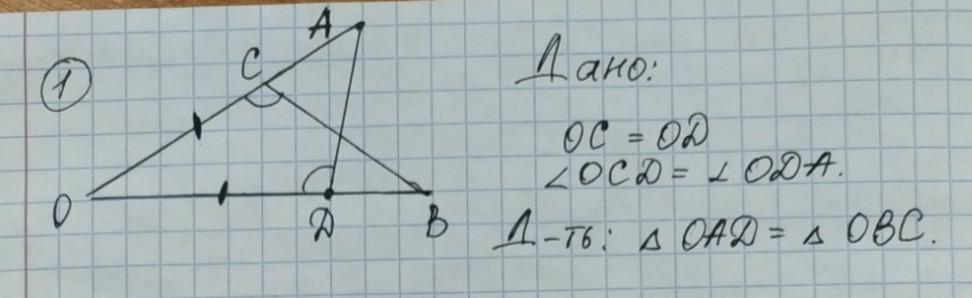 1
A
C
O
D
B
Дано:
OC = OD
∠OCD = ∠ODA.
Д-ть: △ OAD = △ OBC.